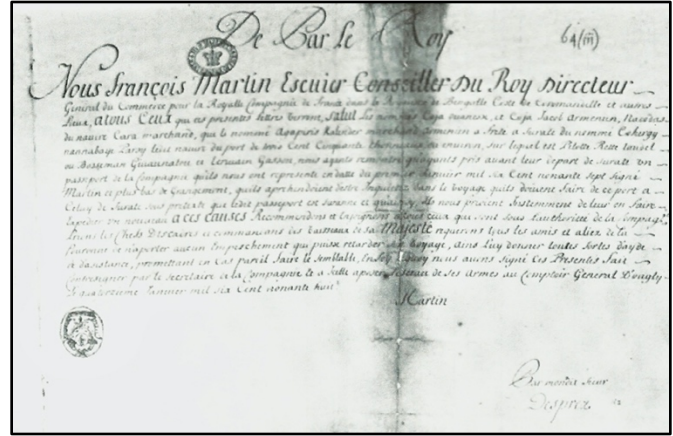 De Par Le Roy
64 (m)
Nous françois Martin Escuier Conseiller Du Roy Directeur
General du Commerce pour la Royalle Compagnie de france dans le Royaume de Bengalle Coste de et autres
Lieux, atous Ceux qui ces presentes lettres verront, salut Les nommés Coja ouaness, et Coja Jacob Armenien, Nacodas
du navire Cara marchand, que le nommé Agapiris Kalender marchand Armenien a freté a Surate du nommé
Leur navire du port de trois Cent Cinquante thonneaux ou environ, sur lequel est Pilote
ou et Gasson, nous ayants remontré qu'ayants pris avant leur depart de Surate un
passeport de la Compagnie qu'ils nous ont representé en datte du premier Janvier mil six Cent nonante sept signé
Martin et plus bas de qu'ils aprehendoient d'estre Inquiettés dans le voyage qu'ils doivent faire de ce port a
Celuy de Surate sous pretexte que ledit passeport est suranné et Ils nous prient Instemment de leur en faire
Expedier un nouveau a ces causes Recommendons et Enjoignons a tous ceux qui sont sous l'authorité de la Compagnie
Prions les Chefs D'escadre et commandans les vaisseaux de sa Majesté requerons tous les amis et aliez de la
Couronne de n'aporter aucun Empeschement qui puisse retarder son voyage, ains Luy donner toutes sortes d'ayde
et d'asistance, promettant en Cas pareil faire le semblable, En foy dequoy nous avons signé Ces Presentes fait
Contresigner par le Secretaire de la Compagnie et a Icelle aposer le sceau de ses Armes au Comptoir General D'ougly
Quatorzieme Janvier mil six Cent nonante huit
Martin
Par mondit sieur
Desprez